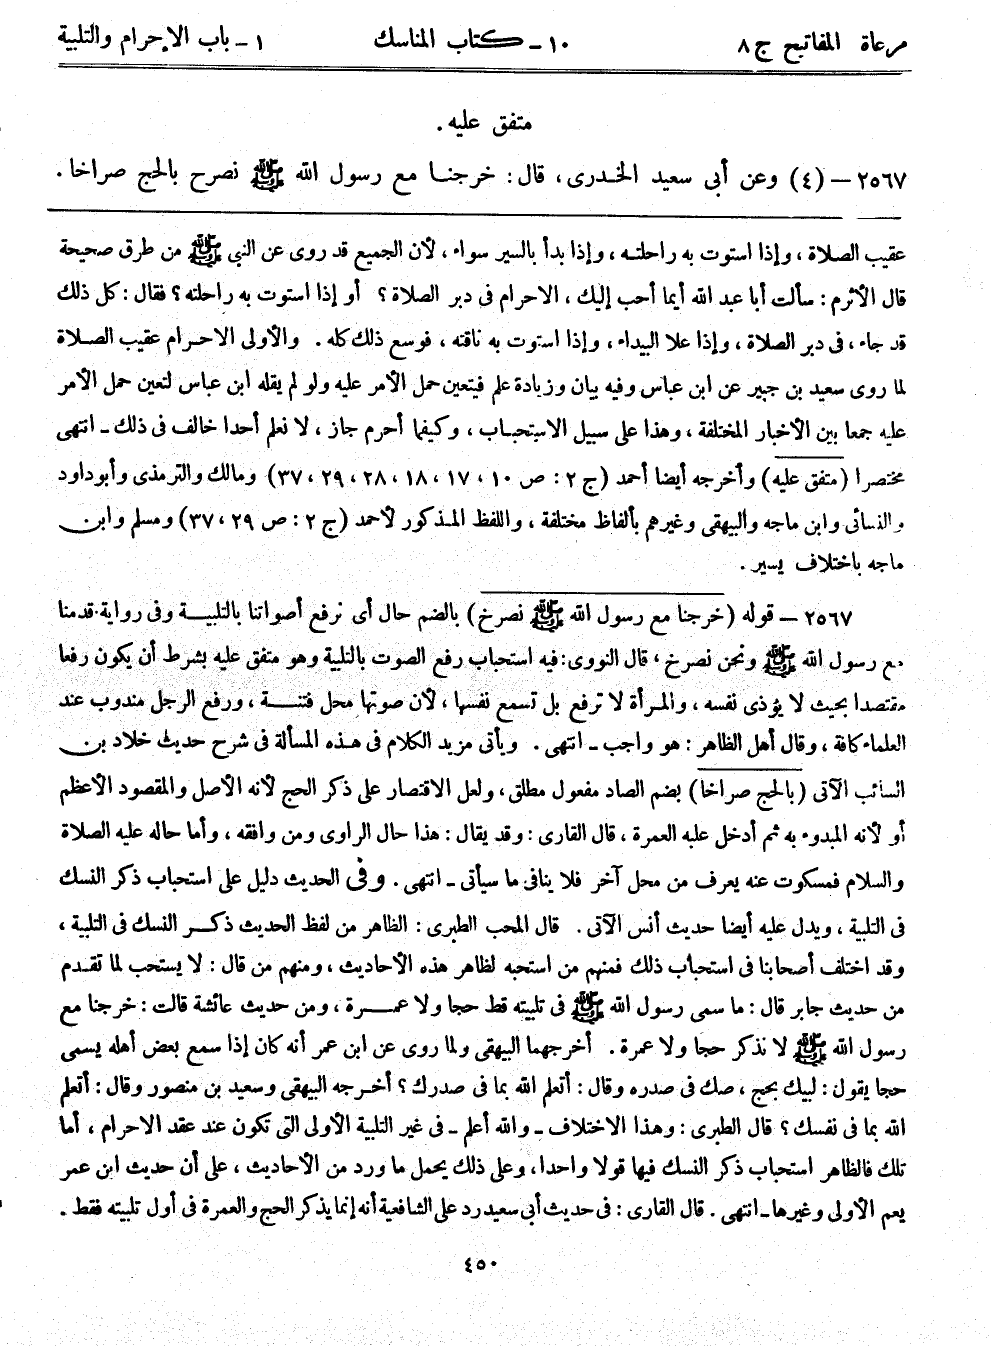 مرعاة المفاتيح ج ٨ ١٠ - كتاب المناسك ١ - باب الإحرام والتلبية
متفق عليه .
٢٥٦٧ – (٤) وعن أبى سعيد الخدرى ، قال : خرجنا مع رسول الله ﷺ نصرح بالحج صراخا .
عقيب الصلاة ، وإذا استوت به راحلته ، وإذا بدأ بالسير سواء ، لأن الجميع قد روى عن النبى ﷺ من طرق صحيحة
قال الأثرم : سألت أبا عبد الله أيما أحب إليك ، الاحرام فى دبر الصلاة ؟ أو إذا استوت به راحلته ؟ فقال : كل ذلك
قد جاء ، فى دبر الصلاة ، وإذا علا البيداء ، وإذا استوت به ناقته ، فوسع ذلك كله . والأولى الاحرام عقيب الصلاة
لما روى سعيد بن جبير عن ابن عباس وفيه بيان وزيادة علم فيتعين حمل الأمر عليه ولو لم يقله ابن عباس لتعين حمل الأمر
عليه جمعا بين الأخبار المختلفة ، وهذا على سبيل الاستحباب ، وكيفما أحرم جاز ، لا نعلم أحدا خالف فى ذلك - انتهى
مختصرا (متفق عليه) وأخرجه أيضا أحمد (ج ٢ : ص ١٠ ، ١٧ ، ١٨ ، ٢٨ ، ٢٩ ، ٣٧) ومالك والترمذى وأبو داود
والنسائى وابن ماجه والبيهقى وغيرهم بألفاظ مختلفة ، واللفظ المذكور لأحمد (ج ٢ : ص ٢٩ ، ٣٧) ومسلم وابن
ماجه باختلاف يسير .
٢٥٦٧ – قوله (خرجنا مع رسول الله ﷺ نصرخ) بالضم حال أى نرفع أصواتنا بالتلبية وفى رواية قدمنا
مع رسول الله ﷺ ونحن نصرخ ، قال النووى : فيه استحباب رفع الصوت بالتلبية وهو متفق عليه بشرط أن يكون رفعا
مقتصدا بحيث لا يؤذى نفسه ، والمرأة لا ترفع بل تسمع نفسها ، لأن صوتها محل فتنة ، ورفع الرجل مندوب عند
العلماء كافة ، وقال أهل الظاهر : هو واجب - انتهى . ويأتى مزيد الكلام فى هذه المسألة فى شرح حديث خلاد بن
السائب الآتى (بالحج صراخا) بضم الصاد مفعول مطلق ، ولعل الاقتصار على ذكر الحج لأنه الأصل والمقصود الأعظم
أو لأنه المبدوء به ثم أدخل عليه العمرة ، قال القارى : وقد يقال : هذا حال الراوى ومن وافقه ، وأما حاله عليه الصلاة
والسلام فمسكوت عنه يعرف من محل آخر فلا ينافى ما سيأتى - انتهى . وفى الحديث دليل على استحباب ذكر النسك
فى التلبية ، ويدل عليه أيضا حديث أنس الآتى . قال المحب الطبرى : الظاهر من لفظ الحديث ذكر النسك فى التلبية ،
وقد اختلف أصحابنا فى استحباب ذلك فمنهم من استحبه لظاهر هذه الأحاديث ، ومنهم من قال : لا يستحب لما تقدم
من حديث جابر قال : ما سمى رسول الله ﷺ فى تلبيته قط حجا ولا عمرة ، ومن حديث عائشة قالت : خرجنا مع
رسول الله ﷺ لا نذكر حجا ولا عمرة . أخرجهما البيهقى ولما روى عن ابن عمر أنه كان إذا سمع بعض أهله يسمى
حجا يقول : لبيك بحج ، صك فى صدره وقال : أتعلم الله بما فى صدرك ؟ أخرجه البيهقى وسعيد بن منصور وقال : أتعلم
الله بما فى نفسك ؟ قال الطبرى : وهذا الاختلاف - والله أعلم - فى غير التلبية الأولى التى تكون عند عقد الاحرام ، أما
تلك فالظاهر استحباب ذكر النسك فيها قولا واحدا ، وعلى ذلك يحمل ما ورد من الأحاديث ، على أن حديث ابن عمر
يعم الأولى وغيرها - انتهى . قال القارى : فى حديث أبى سعيد رد على الشافعية أنه إنما يذكر الحج والعمرة فى أول تلبيته فقط .
٤٥٠